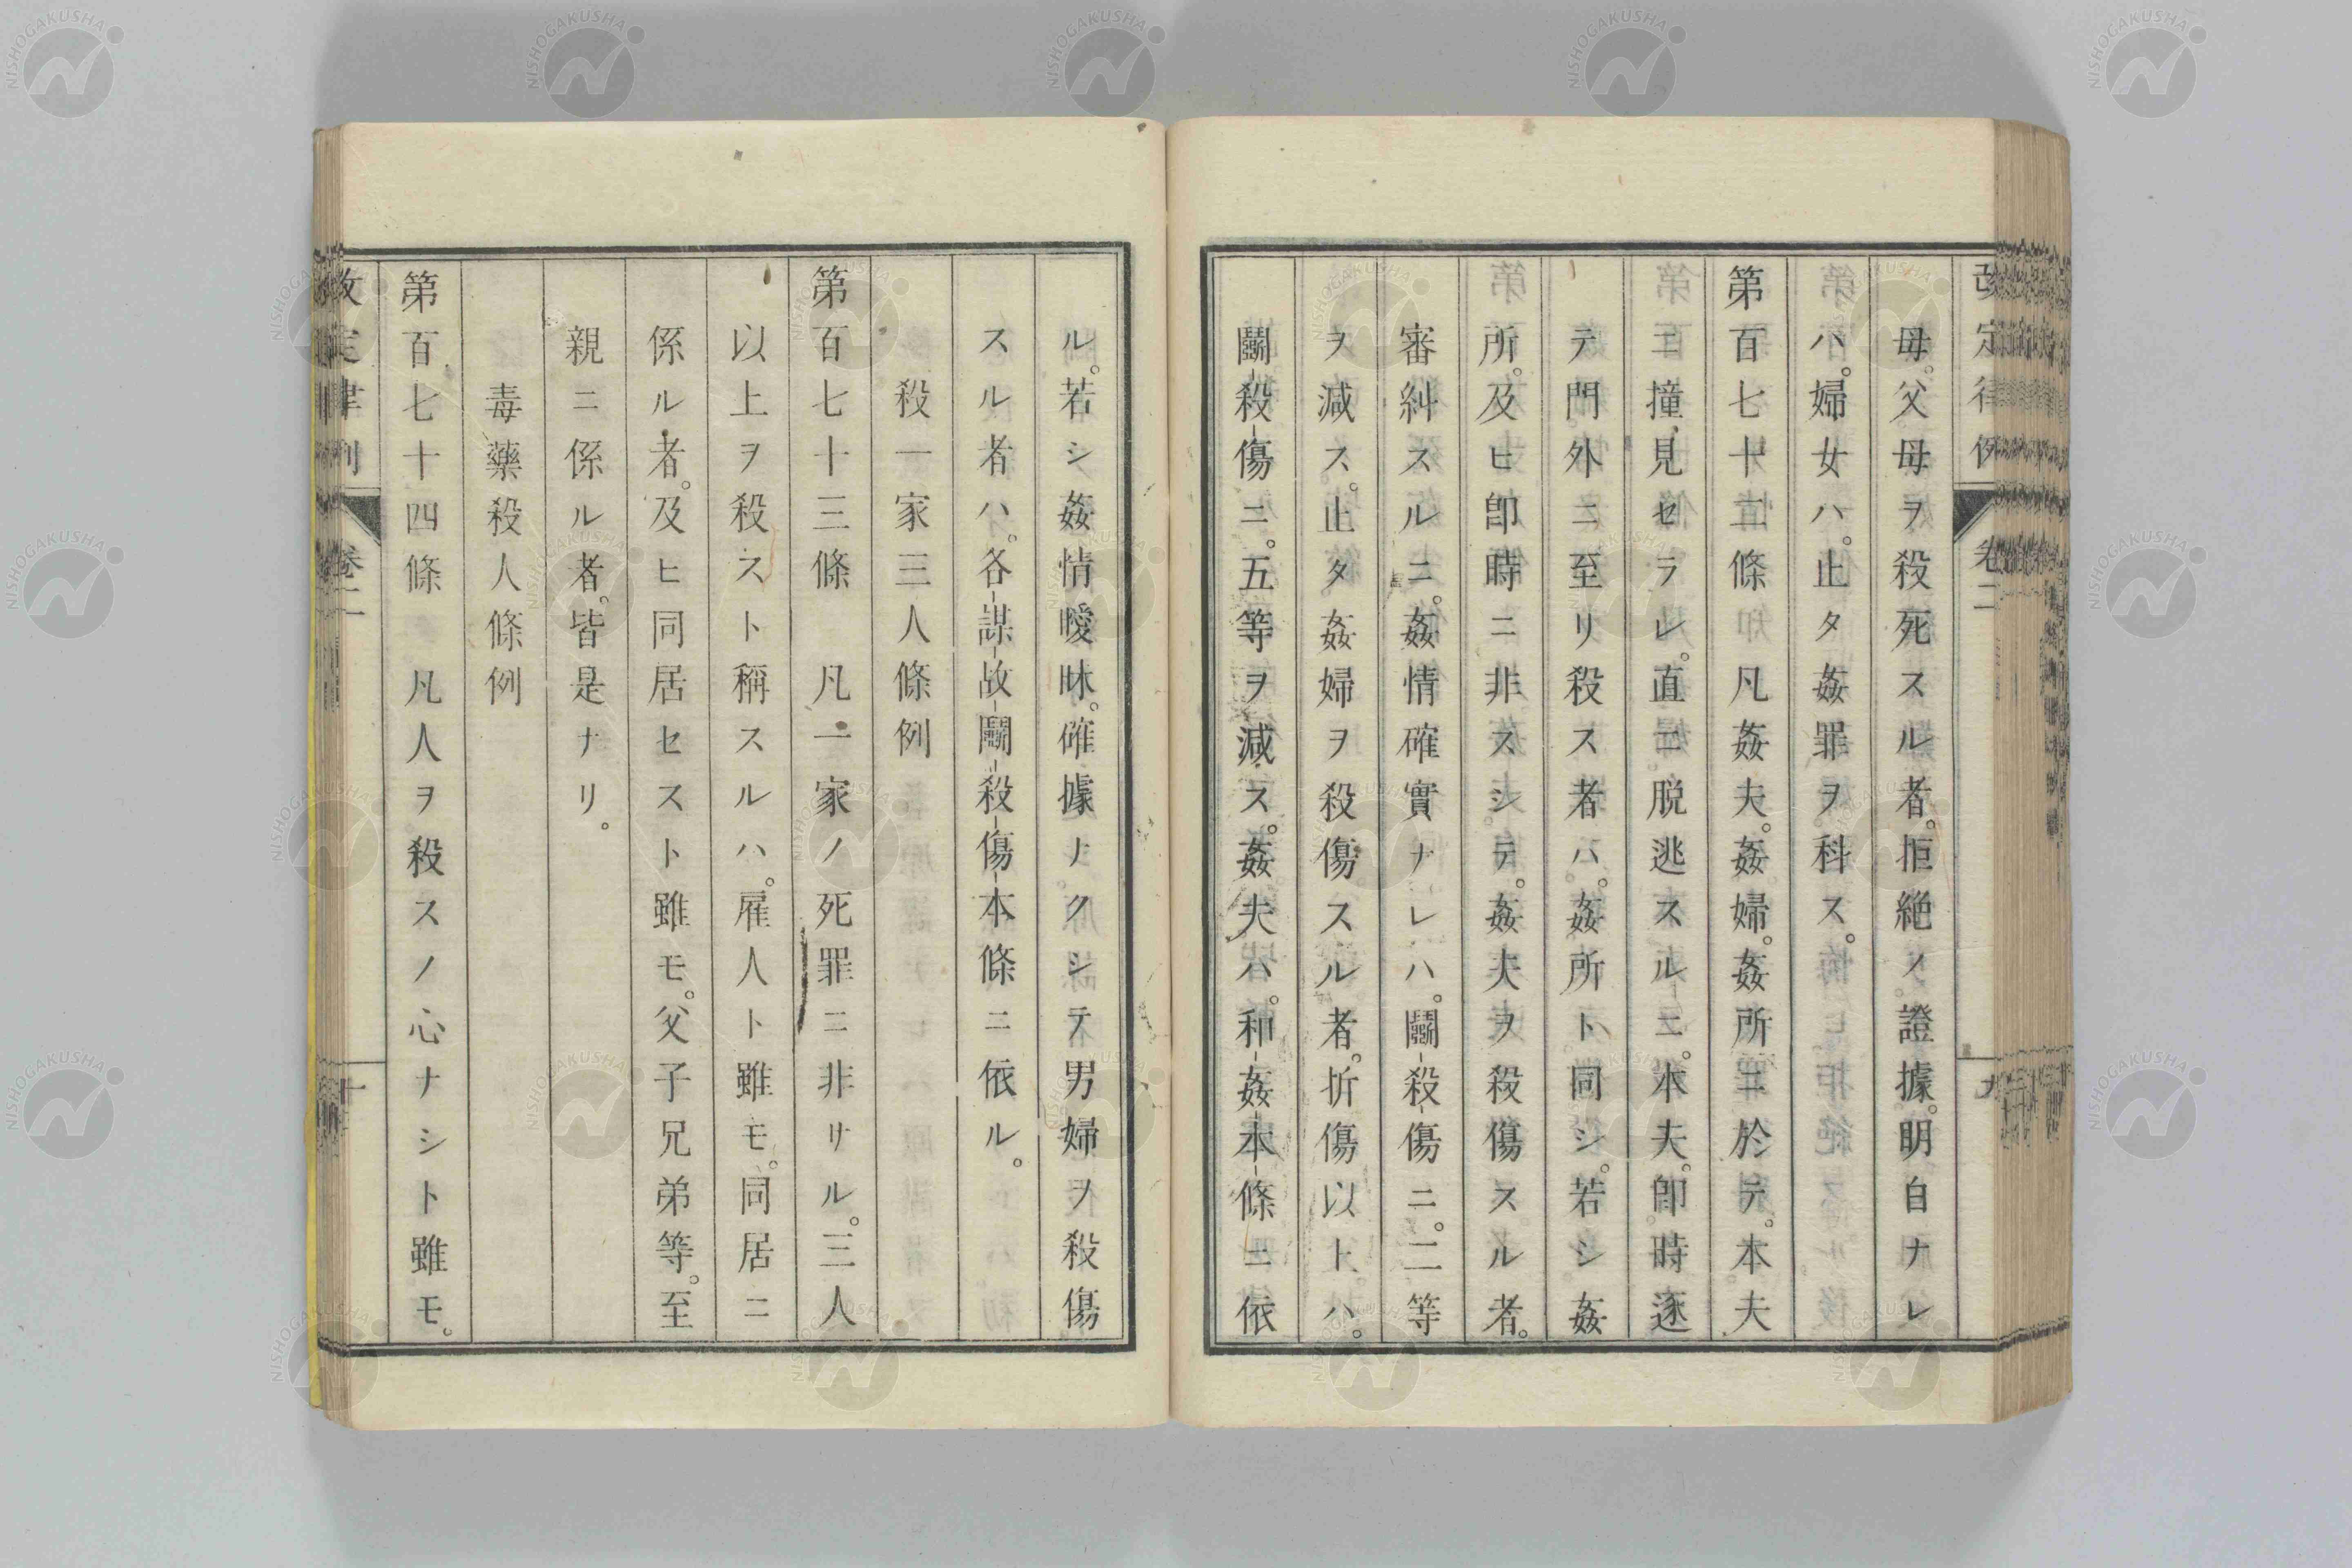 改定律例 卷二 九
母。父母ヲ殺死スル者。拒絶ノ證據。明白ナレ
ハ。婦女ハ。止タ姦罪ヲ科ス。
第百七十二條 凡姦夫。姦婦。姦所ニ於テ。本夫
ニ撞見セラレ。直ニ脱逃スルニ。本夫。卽時逐
テ門外ニ至リ殺ス者ハ。姦所ト同シ。若シ姦
所。及ヒ卽時ニ非スシテ。姦夫ヲ殺傷スル者。
審糾スルニ。姦情確實ナレハ。鬭殺傷ニ。二等
ヲ減ス。止タ姦婦ヲ殺傷スル者。折傷以上ハ。
鬭殺傷ニ。五等ヲ減ス。姦夫ハ。和姦本條ニ依
ル。若シ姦情曖昧。確據ナクシテ男婦ヲ殺傷
スル者ハ。各謀故鬭殺傷本條ニ依ル。
殺一家三人條例
第百七十三條 凡一家ノ死罪ニ非サル。三人
以上ヲ殺スト稱スルハ。雇人ト雖モ。同居ニ
係ル者。及ヒ同居セスト雖モ。父子兄弟等。至
親ニ係ル者。皆是ナリ。
毒藥殺人條例
第百七十四條 凡人ヲ殺スノ心ナシト雖モ。
改定律例 卷二 十
NISHOGAKUSHA